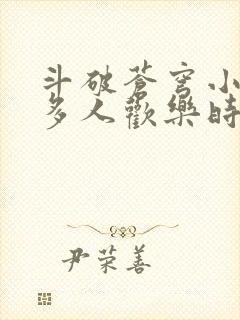 斗破苍穹小
多人歡樂時
尹荣善